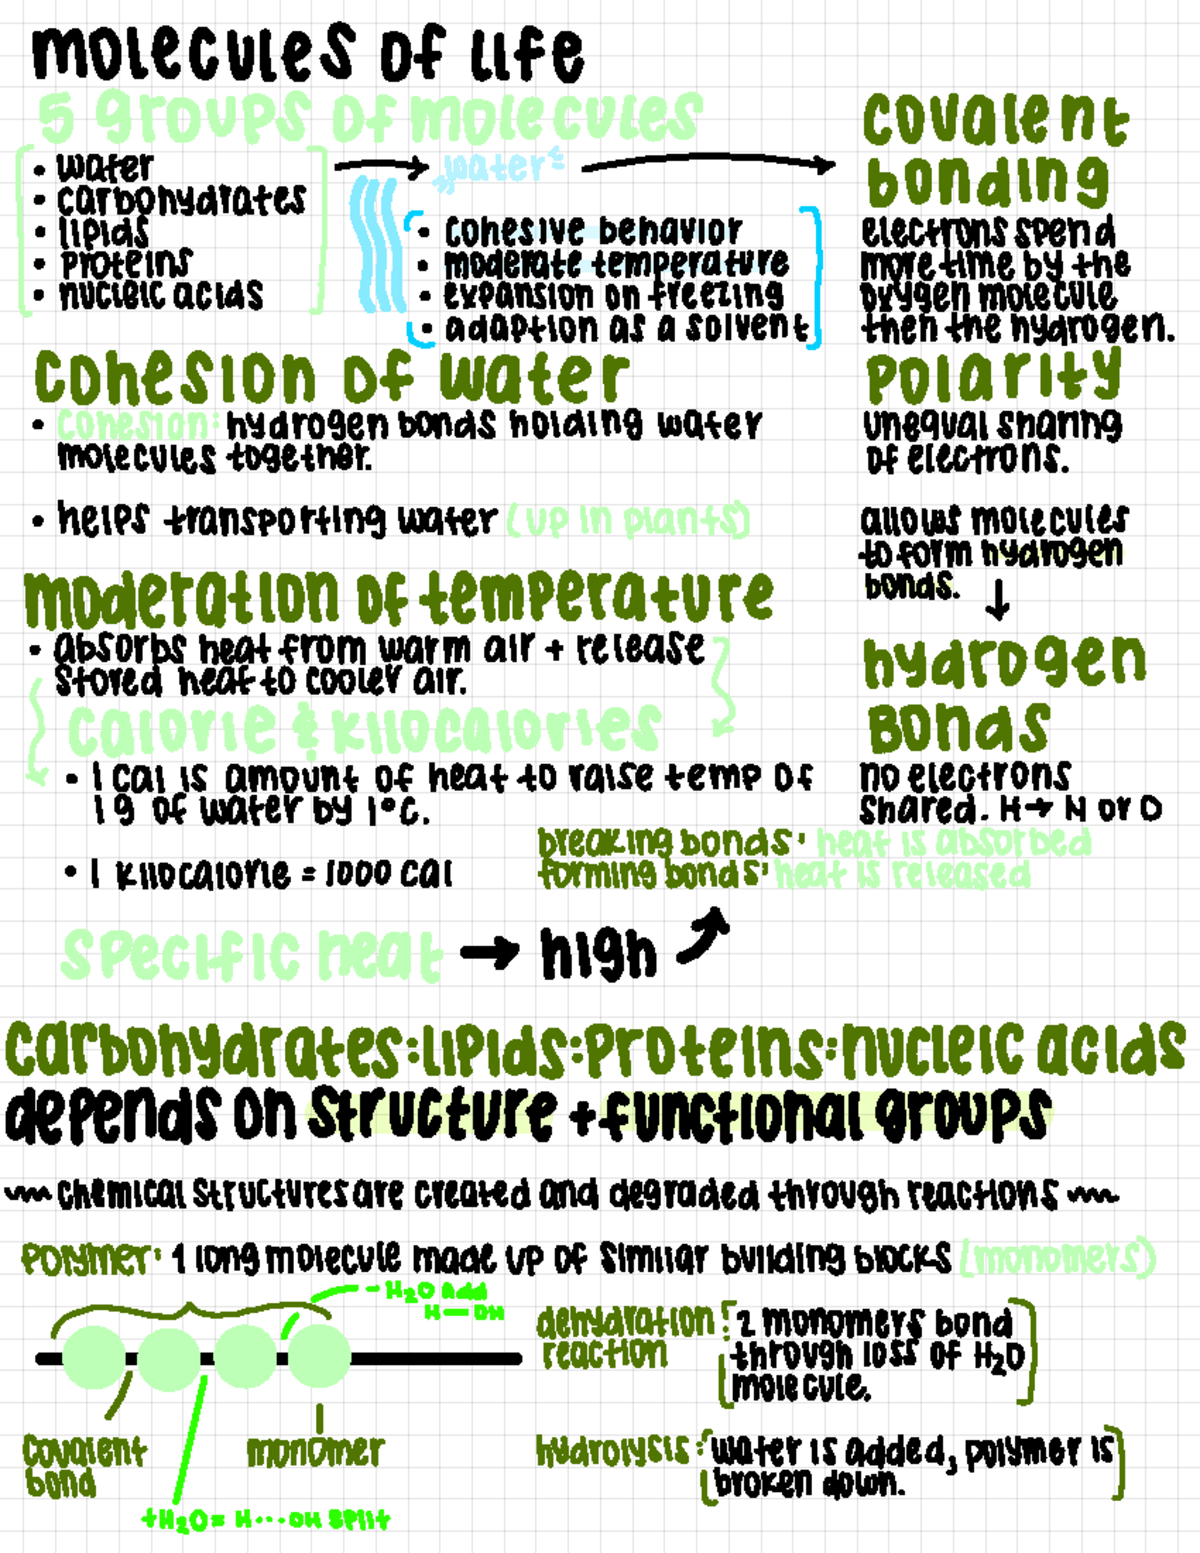 molecules of life
5 groups of molecules
• water
• carbohydrates
• lipids
• proteins
• nucleic acids
"water"
• cohesive behavior
• moderate temperature
• expansion on freezing
• adaption as a solvent
covalent
bonding
electrons spend
more time by the
oxygen molecule
then the hydrogen.
polarity
unequal sharing
of electrons.
allows molecules
to form hydrogen
bonds. ↓
hydrogen
Bonds
no electrons
shared. H→ N or O
cohesion of water
• cohesion: hydrogen bonds holding water
molecules together.
• helps transporting water (up in plants)
moderation of temperature
• absorbs heat from warm air + release
stored heat to cooler air.
calorie & kilocalories
• 1 cal is amount of heat to raise temp of
1 g of water by 1°c.
• 1 kilocalorie = 1000 cal
breaking bonds: heat is absorbed
forming bonds: heat is released
specific heat → high
carbohydrates:lipids:proteins:nucleic acids
depends on structure + functional groups
~ chemical structures are created and degraded through reactions ~
polymer: 1 long molecule made up of similar building blocks (monomers)
- H₂O add
H — OH
covalent
bond
monomer
+H₂O= H···OH split
dehydration
reaction
: 2 monomers bond
through loss of H₂O
molecule.
hydrolysis: water is added, polymer is
broken down.